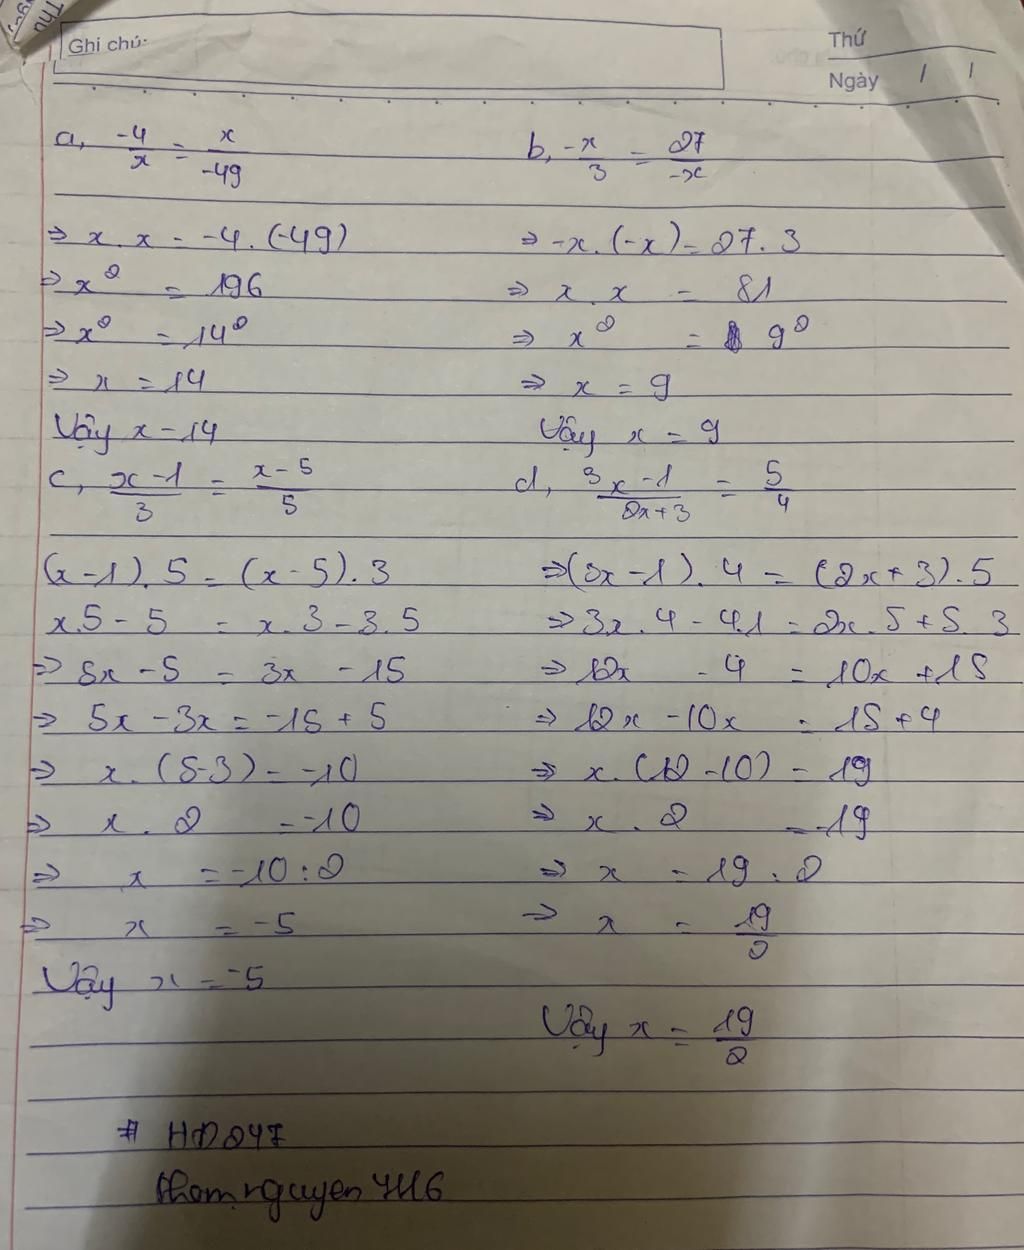 Ghi chú:
Thứ
Ngày / /
a, -4/x = x/-49
=> x.x = -4.(-49)
=> x² = 196
=> x² = 14²
=> x = 14
Vậy x = 14
b, -x/3 = 27/-x
=> -x.(-x) = 27.3
=> x.x = 81
=> x² = 9²
=> x = 9
Vậy x = 9
c, x-1/3 = x-5/5
(x-1).5 = (x-5).3
x.5 - 5 = x.3 - 3.5
=> 5x - 5 = 3x - 15
=> 5x - 3x = -15 + 5
=> x.(5-3) = -10
=> x.2 = -10
=> x = -10:2
=> x = -5
Vậy x = -5
d, 3x-1/2x+3 = 5/4
=> (3x-1).4 = (2x+3).5
=> 3x.4 - 4.1 = 2x.5 + 5.3
=> 12x - 4 = 10x + 15
=> 12x - 10x = 15 + 4
=> x.(12-10) = 19
=> x.2 = 19
=> x = 19:2
=> x = 19/2
Vậy x = 19/2
# HD247